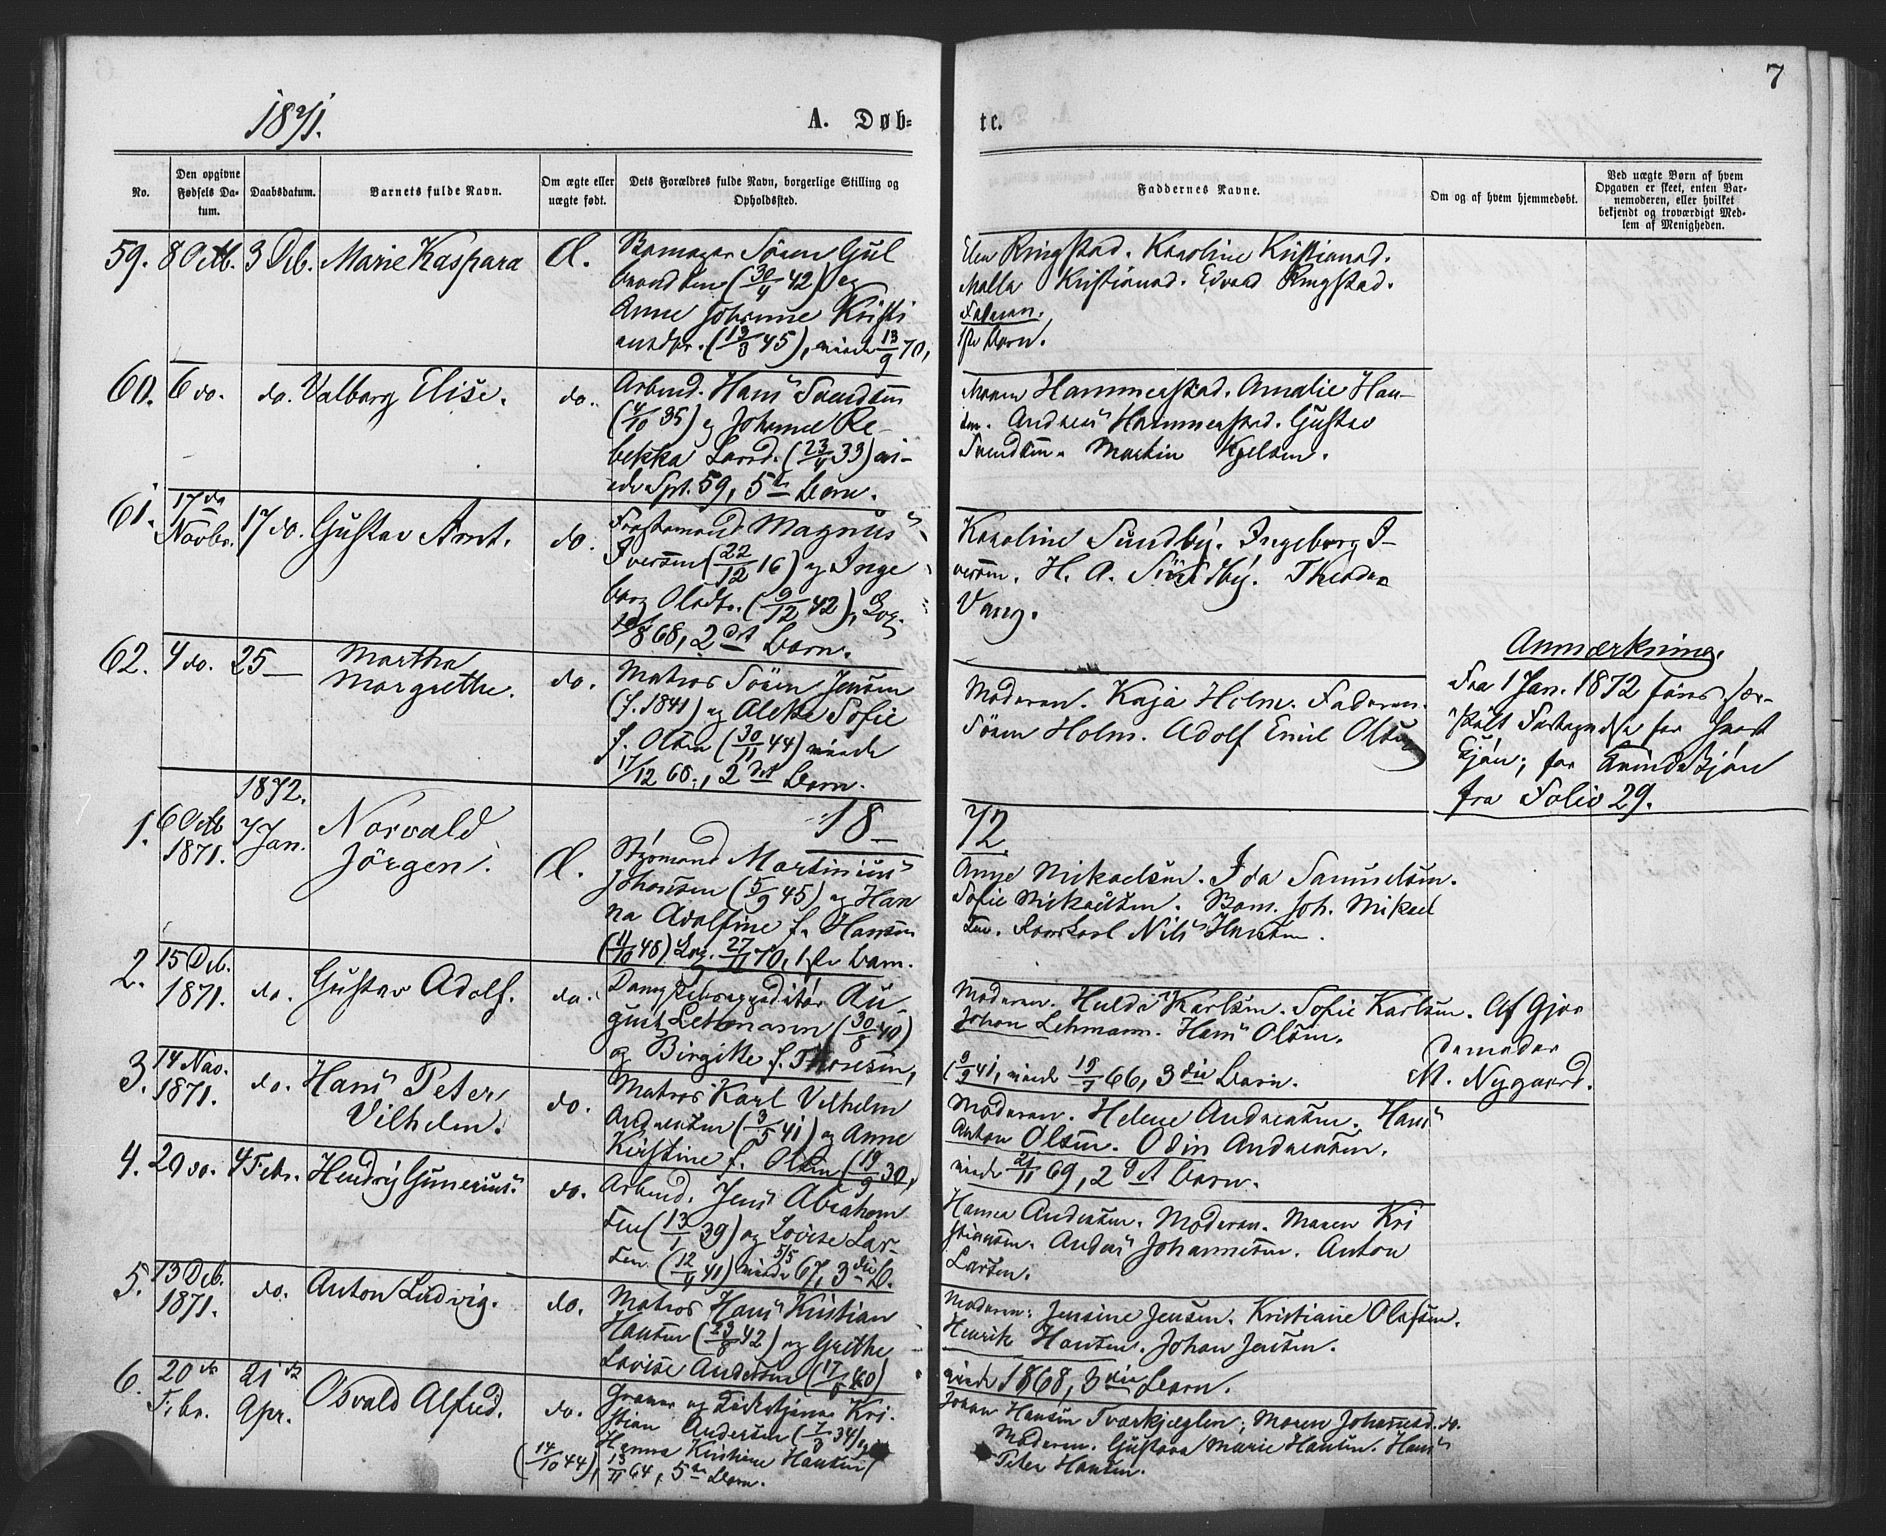 7
1871.
A. Døb=
te.
No.
Den opgivne Fødsels Da-
tum.
Daabsdatum.
Barnets fulde Navn.
Om ægte eller uægte født.
Dets Forældres fulde Navn, borgerlige Stilling og Opholdssted.
Faddernes Navne.
Om og af hvem hjemmedøbt.
Ved uægte Børn af hvem
Opgaven er skeet, enten Bar-
nemoderen, eller hvilket
bekjendt og troværdigt Med-
lem af Menigheden.
59. 8 Octb. 3 Dcb. Marie Kaspara Æ.
Søren Gul
brandsen (30/4 42) og
Anne Johanne Kristi
ansdtr. (13/8 45), viede 13/9 70,
Elen Ringstad. Karoline Kristiansd.
Malla Kristiansd. Edvard Ringstad.
Faderen.
1ste Barn.
60. 6 do. do. Valborg Elise. do.
Arbmd. Hans Svendsen
(4/10 35) og Johanne Re-
bekka Larsd. (23/4 33) vi-
ede Spt. 59, 5te Barn.
Maren Hammerstad. Amalie Han-
sen. Andreas Hammerstad. Gustav
Svendsen. Martin Kjelsen.
61. 17de Novbr. 17 do. Gustav Arnt. do.
Magnus
Iversen (22/12 16) og Inge
borg Olsdtr. (9/12 42),
68, 2det Barn.
Karoline Sundby. Ingeborg I-
versen. H. A. Sundby. Theodor
Vang.
62. 4 do. 25 — Martha
Margrethe. do.
Matros Søren Jensen
(f. 1841) og Aleth Sofie
f. Olsen (30/11 44) viede
17/12 68., 2det Barn.
Moderen. Kaja Holm. Faderen.
Søren Holm. Adolf Emil Olsen
Anmærkning.
Fra 1 Jan. 1872 føres sær-
skilt Fortegnelse for hvert
Kjøn; for Kvindekjøn
fra Folio 29.
1872.
18—
72.
1. 6 Octb 1871. 7 Jan. Norvald
Jørgen. Æ.
Styrmand Martinius
Johansen (5/9 45) og Han
na Adolfine f. Hansen
(11/10 48) 27/11 70, 1ste Barn.
Anne Mikaelsen. Ida Samuelsen.
Sofie Mikaelsen. Joh. Mikael
sen. Nils Hansen.
2. 15 Dcb. 1871. do. Gustav Adolf. do.
Au-
gust Lehmann (30/8 40)
og Birgitte f. Thoresen,
Moderen. Hulda Karlsen. Sofie Karlsen. Af Gjor
Johan Lehmann. Hans Olsen. demoder
(9/2 41, viede 19/7 66, 3die Barn. M. Nygaard.
3. 14 Nov. 1871. do. Hans Peter
Vilhelm. do.
Matros Karl Vilhelm
Andreasen (3/5 41) og Anne
Kirstine f. Olsen (19/9 30,
Moderen. Helene Andreasen. Hans
Anton Olsen. Odin Andreasen.
viede 21/11 69, 2det Barn.
4. 29 do. 4 Febr. Hendrÿ Gunerius. do.
Arbmd. Jens Abraham
sen (13/1 39) og Lovise Lar-
sen (12/4 41) viede 5/5 67, 3die B.
Hanna Andersen. Moderen. Maren Kri
stiansen. Anders Johannesen. Anton
Larsen.
5. 13 Dcb. 1871. do. Anton Ludvig. do.
Matros Hans Kristian
Hansen (23/8 42) og Grethe
Lovise Andersen (17/8 40)
Moderen. Jensine Jensen. Kristiane Olafsen.
Henrik Hansen. Johan Jensen.
viede 1868, 3die Barn.
6. 20de Febr. 21de Apr. Osvald Alfred. do.
Kri-
stian Andersen (7/8 34) og
Hanna Kristine Hansen
(14/10 44), 13/11 64, 5te Barn.
Johan Hansen Tværkjæglen; Maren Johannesd. do.
Moderen. Gustava Marie Hansen. Hans
Peter Hansen.